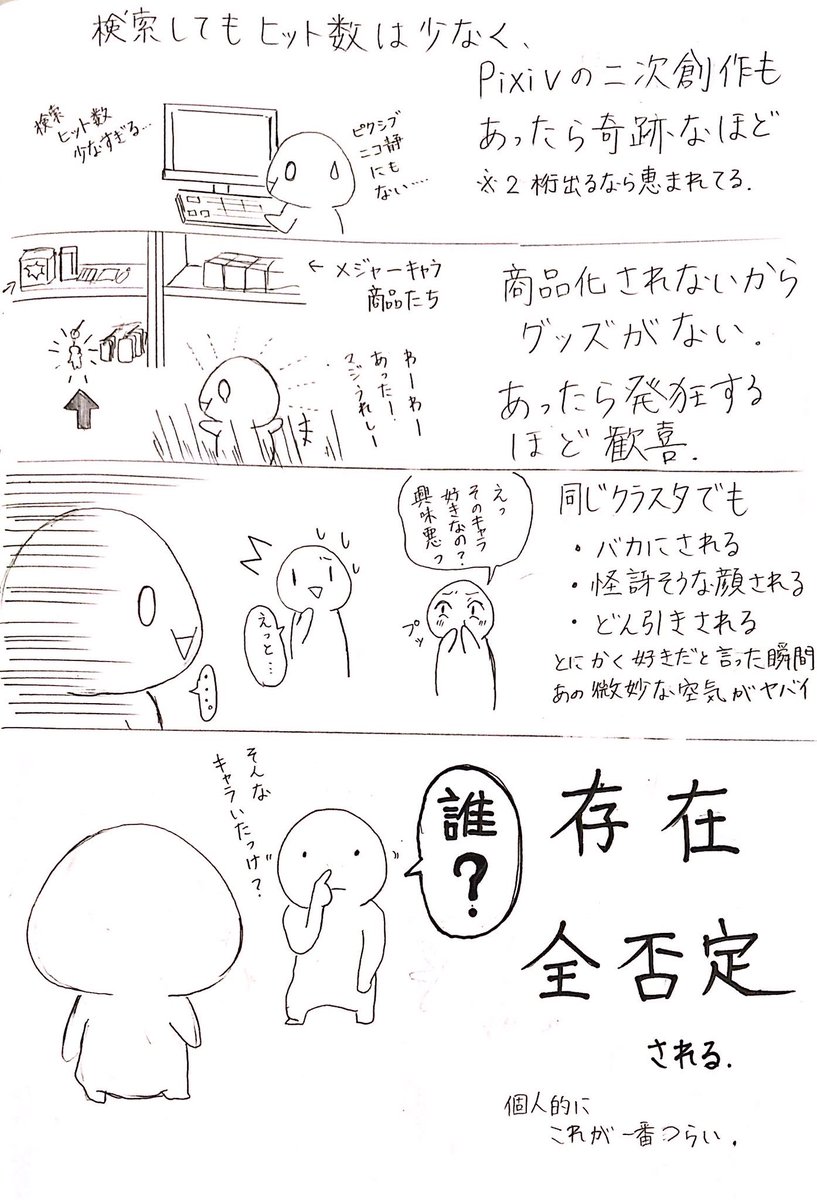 検索してもヒット数は少なく、
Pixivの二次創作も
あったら奇跡なほど
※2桁出るなら恵まれてる.
検索
ヒット数
少なすぎる…
ピクシブ
ニコ静
にも
ない……
←メジャーキャラ
商品たち
商品化されないから
グッズがない.
あったら発狂する
ほど歓喜.
わーわー
あったー!
マジうれしー
同じクラスタでも
・バカにされる
・怪訝そうな顔される
・どん引きされる
とにかく好きだと言った瞬間
あの微妙な空気がヤバイ
えっ
そのキャラ
好きなの?
興味悪っ
プッ
えっと…
…
存在
全否定
される.
誰?
そんな
キャラいたっけ?
個人的に
これが一番つらい.